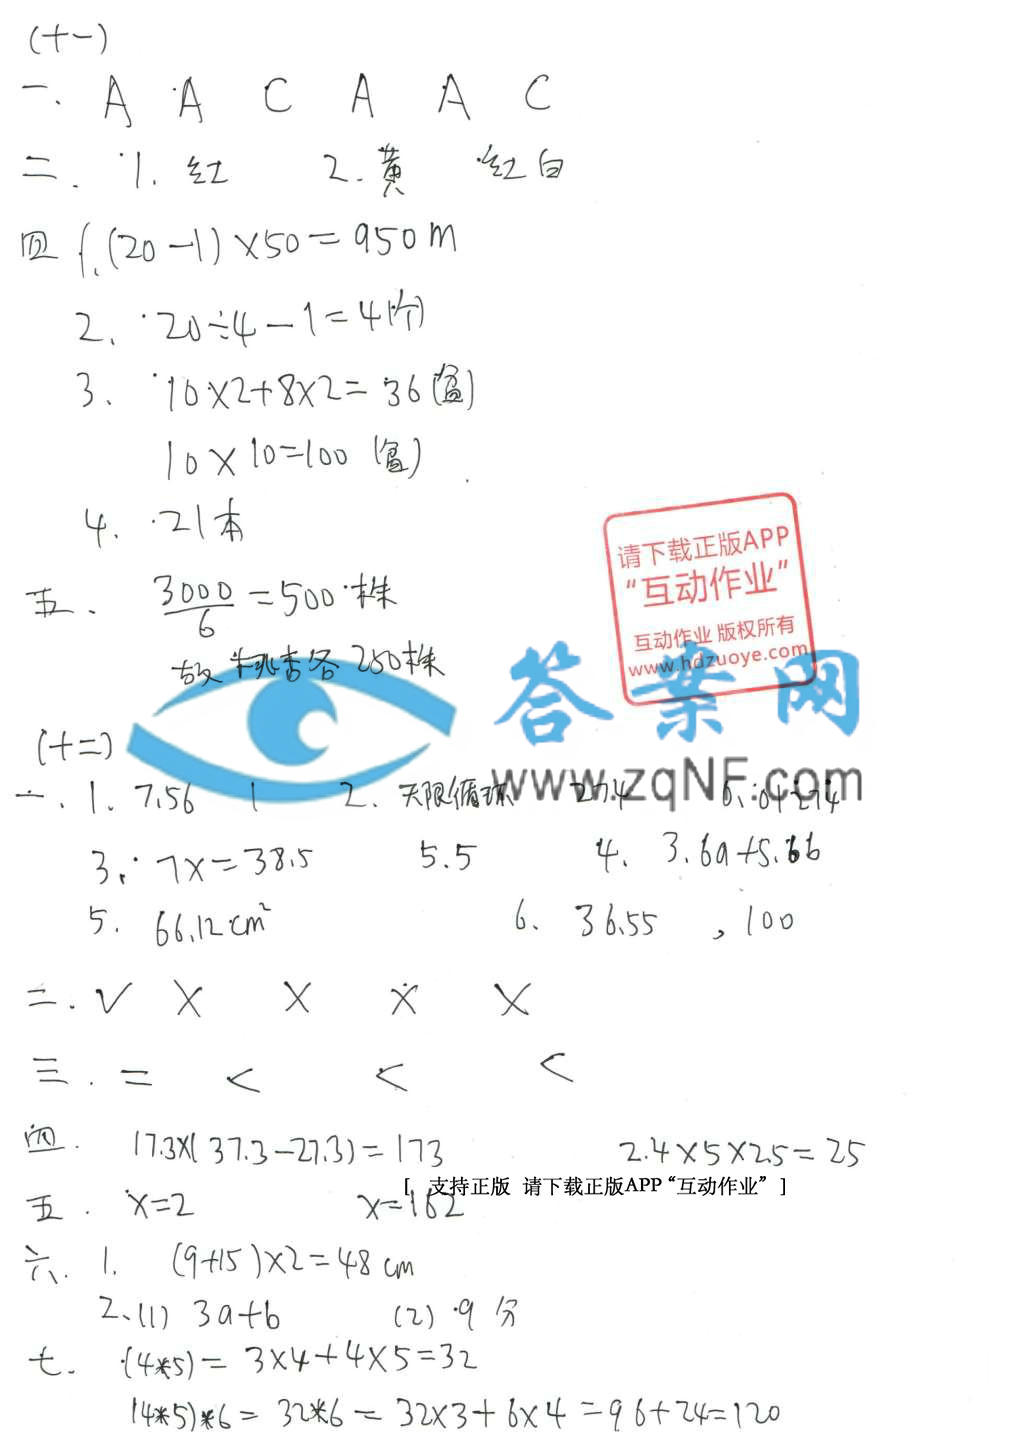 (十一)
一. A A C A A C
二. 1. 红 2. 黄 红白
四 1. (20-1)×50=950m
2. 20÷4-1=4(个)
3. 10×2+8×2=36(盆)
10×10=100 (盆)
4. 21本
请下载正版APP
“互动作业”
互动作业 版权所有
www.hdzuoye.com
五. 3000/6=500株
故桃杏各250株
答案网
www.zqNF.com
(十二)
一. 1. 7.56 1 2. 无限循环 27.4
3. 7x=38.5 5.5 4. 3.6a+5.6b
5. 66.12cm² 6. 36.55 , 100
二. √ × × × ×
三. = < < <
四. 17.3×(37.3-27.3)=173 2.4×5×2.5=25
[ 支持正版 请下载正版APP“互动作业” ]
五. x=2 x=162
六. 1. (9+15)×2=48cm
2. (1) 3a+b (2) 9分
七. (4*5)=3×4+4×5=32
(4*5)*6=32*6=32×3+6×4=96+24=120